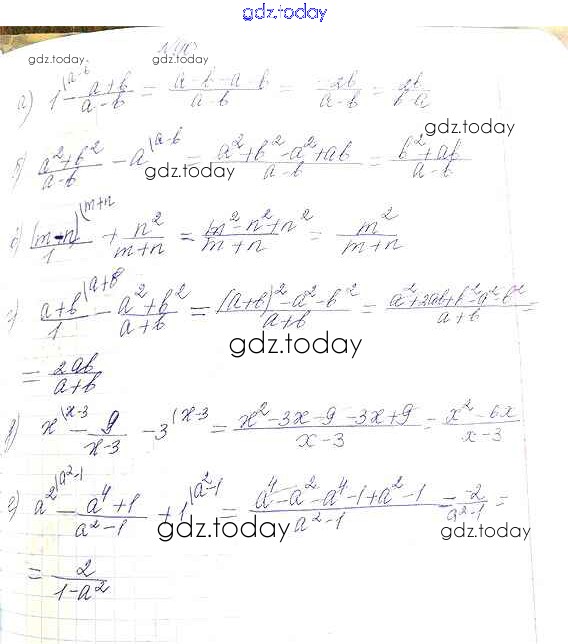 gdz.today
gdz.today gdz.today
а) 1^(a-b - (a+b)/(a-b) = (a-b-a-b)/(a-b) = (-2b)/(a-b) = 2b/(b-a)
gdz.today
б) (a²+b²)/(a-b) - a^(a-b = (a²+b²-a²+ab)/(a-b) = (b²+ab)/(a-b)
gdz.today
(m-n)/1^(m+n + n²/(m+n) = (m²-n²+n²)/(m+n) = m²/(m+n)
г) (a+b)/1^(a+b - (a²+b²)/(a+b) = ((a+b)²-a²-b²)/(a+b) = (a²+2ab+b²-a²-b²)/(a+b) =
gdz.today
= 2ab/(a+b)
x^(x-3 - 9/(x-3) - 3^(x-3 = (x²-3x-9-3x+9)/(x-3) = (x²-6x)/(x-3)
a²^(a²-1 - (a⁴+1)/(a²-1) + 1^(a²-1 = (a⁴-a²-a⁴-1+a²-1)/(a²-1) = -2/(a²-1) =
gdz.today gdz.today
= 2/(1-a²)